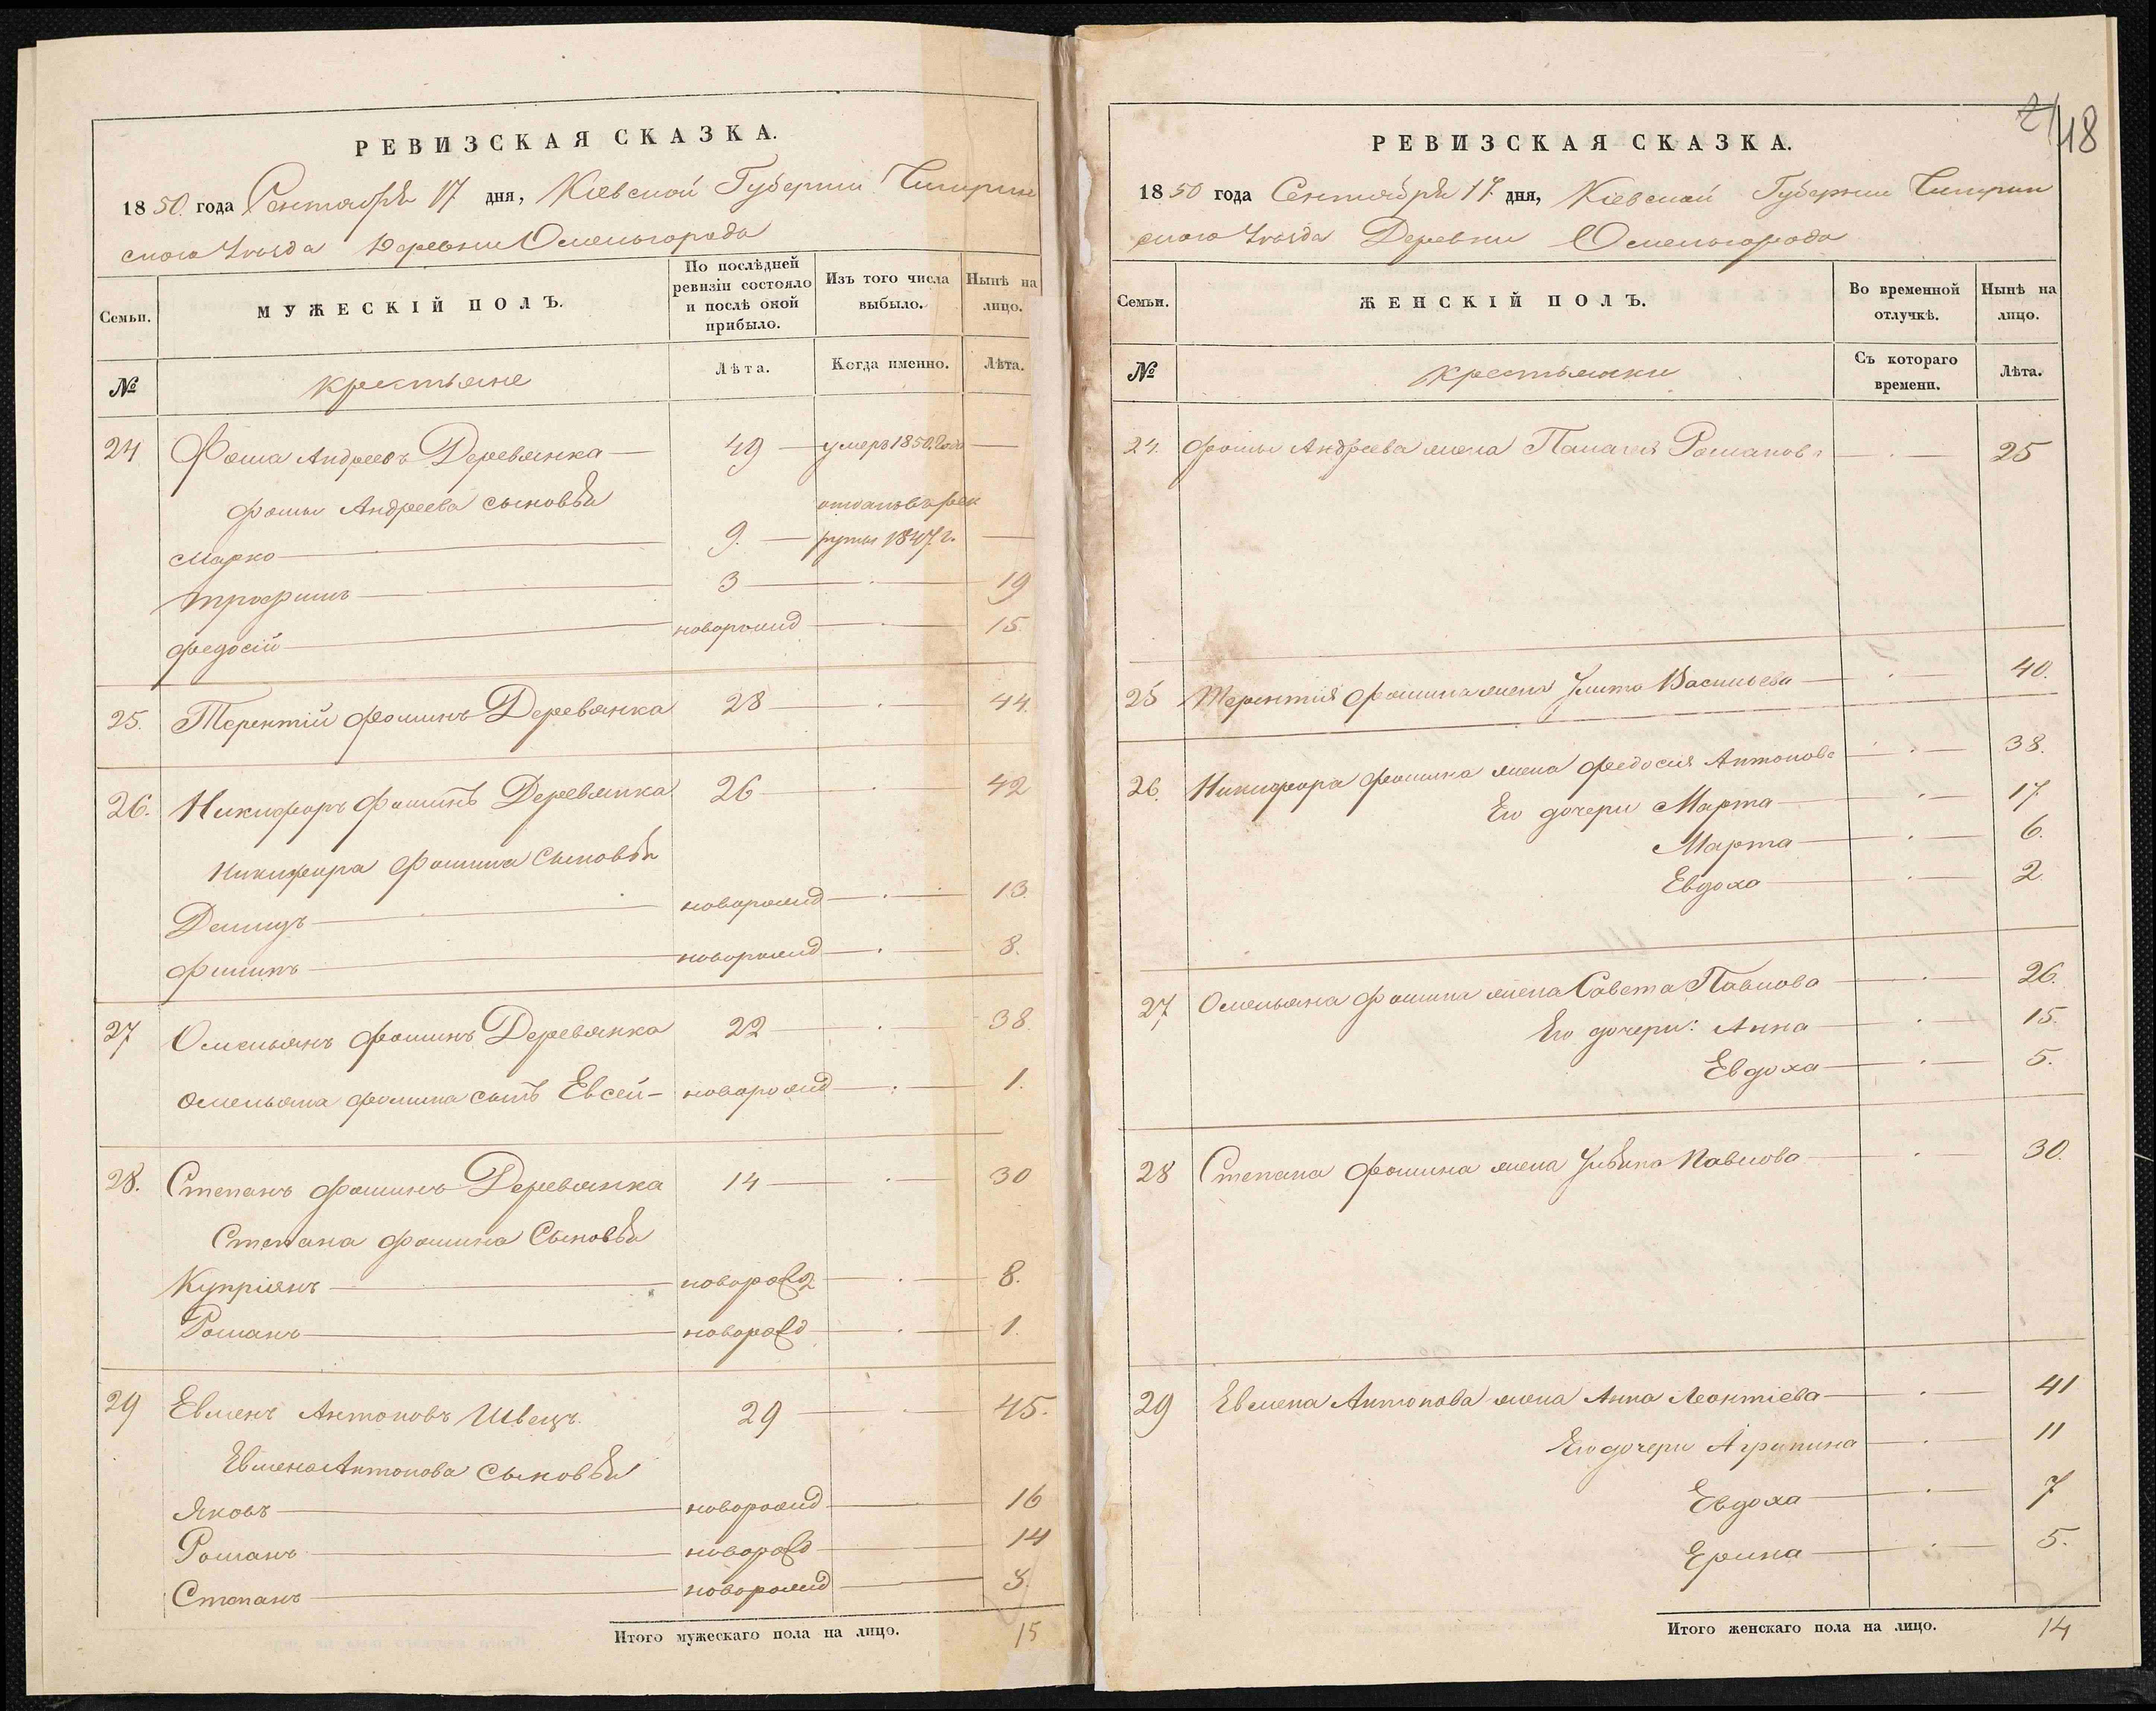 РЕВИЗСКАЯ СКАЗКА.
1850. года Сентября 17 дня, Кіевской Губерніи Чигирин
скаго Уѣзда Деревни Осмельгорода
Семьи.
МУЖЕСКІЙ ПОЛЪ.
По послѣдней ревизіи состояло и послѣ оной прибыло.
Изъ того числа выбыло.
Нынѣ на лицо.
№
крестьяне
Лѣта.
Когда именно.
Лѣта.
24 Фома Андреевъ Деревянка — 49 — умеръ 1850. Года —
Фомы Андреева сыновья
отданъ въ рек
Марко — 9. — руты 1847. г. —
Трофимъ — 3 — 19
Федосій — новорожд — 15.
25. Терентій Фоминъ Деревянка 28 — 44.
26. Никифоръ Фоминъ Деревянка 26 — 42
Никифора Фомина Сыновья
Демидъ — новорожд — 13.
Филипъ — новорожд — 8.
27 Омельянъ Фоминъ Деревянка 22 — 38.
Омельяна Фомина сынъ Евсей — новорожд — 1.
28. Степанъ Фоминъ Деревянка 14 — 30
Степана Фомина Сыновья
Купріянъ — новорожд — 8.
Романъ — новорожд — 1.
29 Евменъ Антоновъ Швецъ. 29 — 45.
Евмена Антонова сыновья
Яковъ — новорожд — 16
Романъ — новорожд — 14
Степанъ — новорожд — 3.
Итого мужескаго пола на лицо. 15
21 18
РЕВИЗСКАЯ СКАЗКА.
1850 года Сентября 17. дня, Кіевской Губерніи Чигирин
скаго Уѣзда Деревни Осмельгорода
Семьи.
ЖЕНСКІЙ ПОЛЪ.
Во временной отлучкѣ.
Нынѣ на лицо.
№
крестьянки
Съ котораго времени.
Лѣта.
24. Фомы Андреева жена Палагея Романова — 25
25 Терентія Фомина жена Улита Васильева — 40.
26. Никифора Фомина жена Федосія Антонова — 38.
Его дочери Марта — 17
Марта — 6.
Евдоха — 2.
27 Омельяна Фомина жена Савета Павлова — 26.
Его дочери: Анна — 15.
Евдоха — 5.
28 Степана Фомина жена Ульяна Павлова — 30.
29 Евмена Антонова жена Анна Леонтіева — 41
Его дочери Агрипина — 11
Евдоха — 7
Ерина — 5.
Итого женскаго пола на лицо. 14